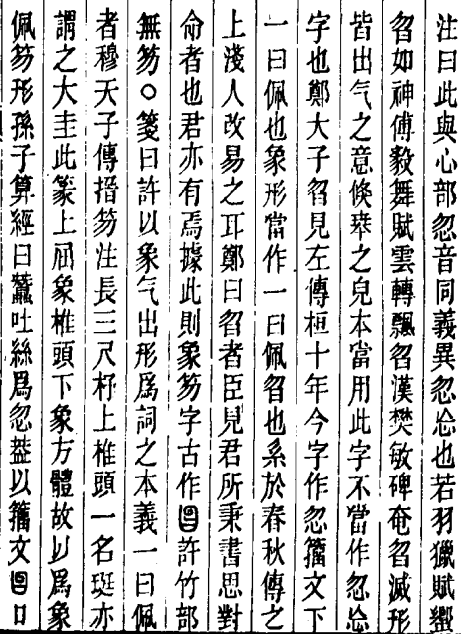 注曰此與心部忽音同義異忽忘也若羽獵賦蠁
曶如神傅毅舞賦雲轉飄曶漢樊敏碑奄曶滅形
皆出气之意倏桒之皃本當用此字不當作忽忘
字也鄭大子曶見左傳桓十年今字作忽籒文下
一曰佩也象形當作一曰佩曶也系於春秋傳之
上淺人改易之耳鄭曰曶者臣見君所秉書思對
命者也君亦有焉據此則象笏字古作許竹部
無笏○箋曰許以象气出形爲詞之本義一曰佩
者穆天子傳搢笏注長三尺杼上椎頭一名珽亦
謂之大圭此篆上屈象椎頭下象方體故以爲象
佩笏形孫子算經曰蠶吐絲爲忽葢以籒文口